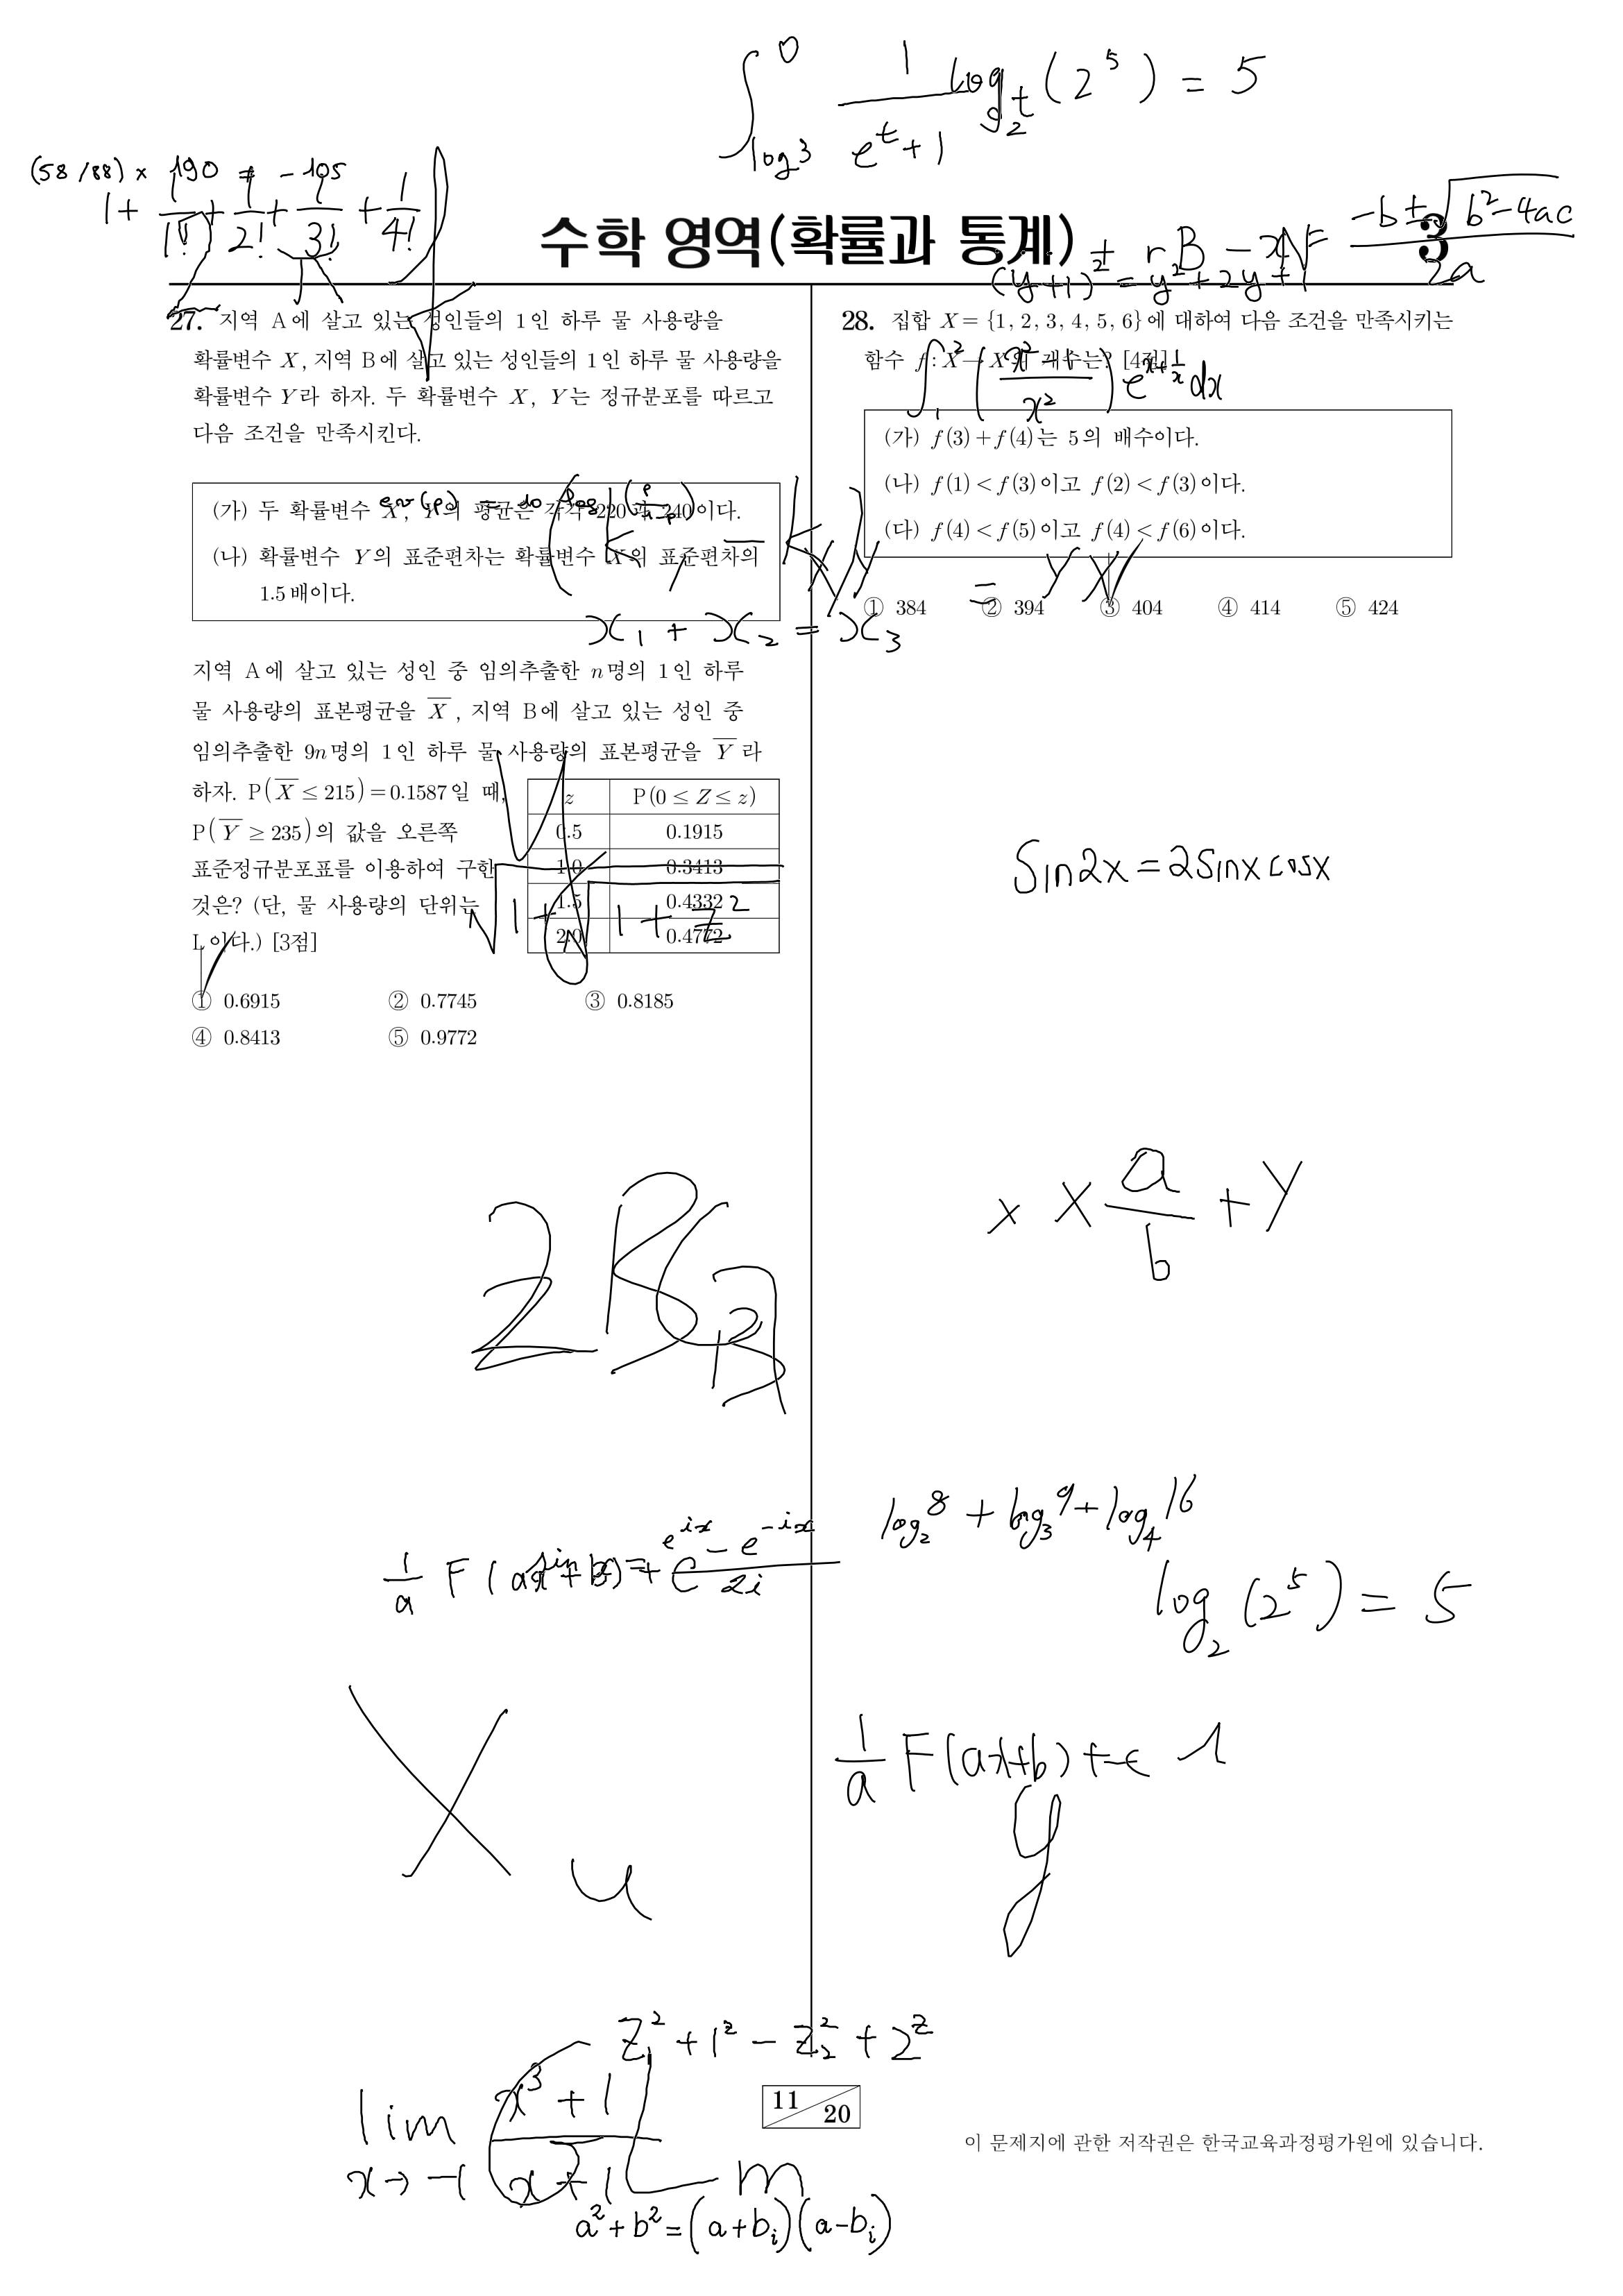 ∫_{log3}^{0} 1/(e^t+1) log_2 t (2^5) = 5
(58/88) × 190 = -105
1 + 1/1! + 1/2! + 1/3! + 1/4!
수학 영역(확률과 통계)
3
± rB - xN = (-b ± √(b²-4ac))/2a
(y+1)² = y²+2y+1
27. 지역 A에 살고 있는 성인들의 1인 하루 물 사용량을
확률변수 X, 지역 B에 살고 있는 성인들의 1인 하루 물 사용량을
확률변수 Y라 하자. 두 확률변수 X, Y는 정규분포를 따르고
다음 조건을 만족시킨다.
(가) 두 확률변수 X, Y의 평균은 각각 220과 240이다.
(나) 확률변수 Y의 표준편차는 확률변수 X의 표준편차의
1.5배이다.
x₁ + x₂ = x₃
지역 A에 살고 있는 성인 중 임의추출한 n명의 1인 하루
물 사용량의 표본평균을 X̄, 지역 B에 살고 있는 성인 중
임의추출한 9n명의 1인 하루 물 사용량의 표본평균을 Ȳ라
하자. P(X̄ ≤ 215) = 0.1587일 때,
P(Ȳ ≥ 235)의 값을 오른쪽
표준정규분포표를 이용하여 구한
것은? (단, 물 사용량의 단위는
L이다.) [3점]
z P(0 ≤ Z ≤ z)
0.5 0.1915
1.0 0.3413
1.5 0.4332
2.0 0.4772
√(1+√(1+z²))
① 0.6915 ② 0.7745 ③ 0.8185
④ 0.8413 ⑤ 0.9772
28. 집합 X = {1, 2, 3, 4, 5, 6}에 대하여 다음 조건을 만족시키는
함수 f : X → X의 개수는? [4점]
∫_1^2 ((x²-1)/x²) e^{x+1/x} dx
(가) f(3)+f(4)는 5의 배수이다.
(나) f(1) < f(3)이고 f(2) < f(3)이다.
(다) f(4) < f(5)이고 f(4) < f(6)이다.
① 384 ② 394 ③ 404 ④ 414 ⑤ 424
Sin2x = 2Sinx cosx
x X a/b + y
log₂8 + log₃9 + log₄16
1/a F(ax+b) + C
sin x = (e^{ix} - e^{-ix})/2i
log₂(2⁵) = 5
X
u
1/a F(ax+b) + c
y
z₁² + 1² - z₂² + 2²
lim x→-1 (x³+1)/(x+1)
m
a²+b² = (a+bi)(a-bi)
11 20
이 문제지에 관한 저작권은 한국교육과정평가원에 있습니다.